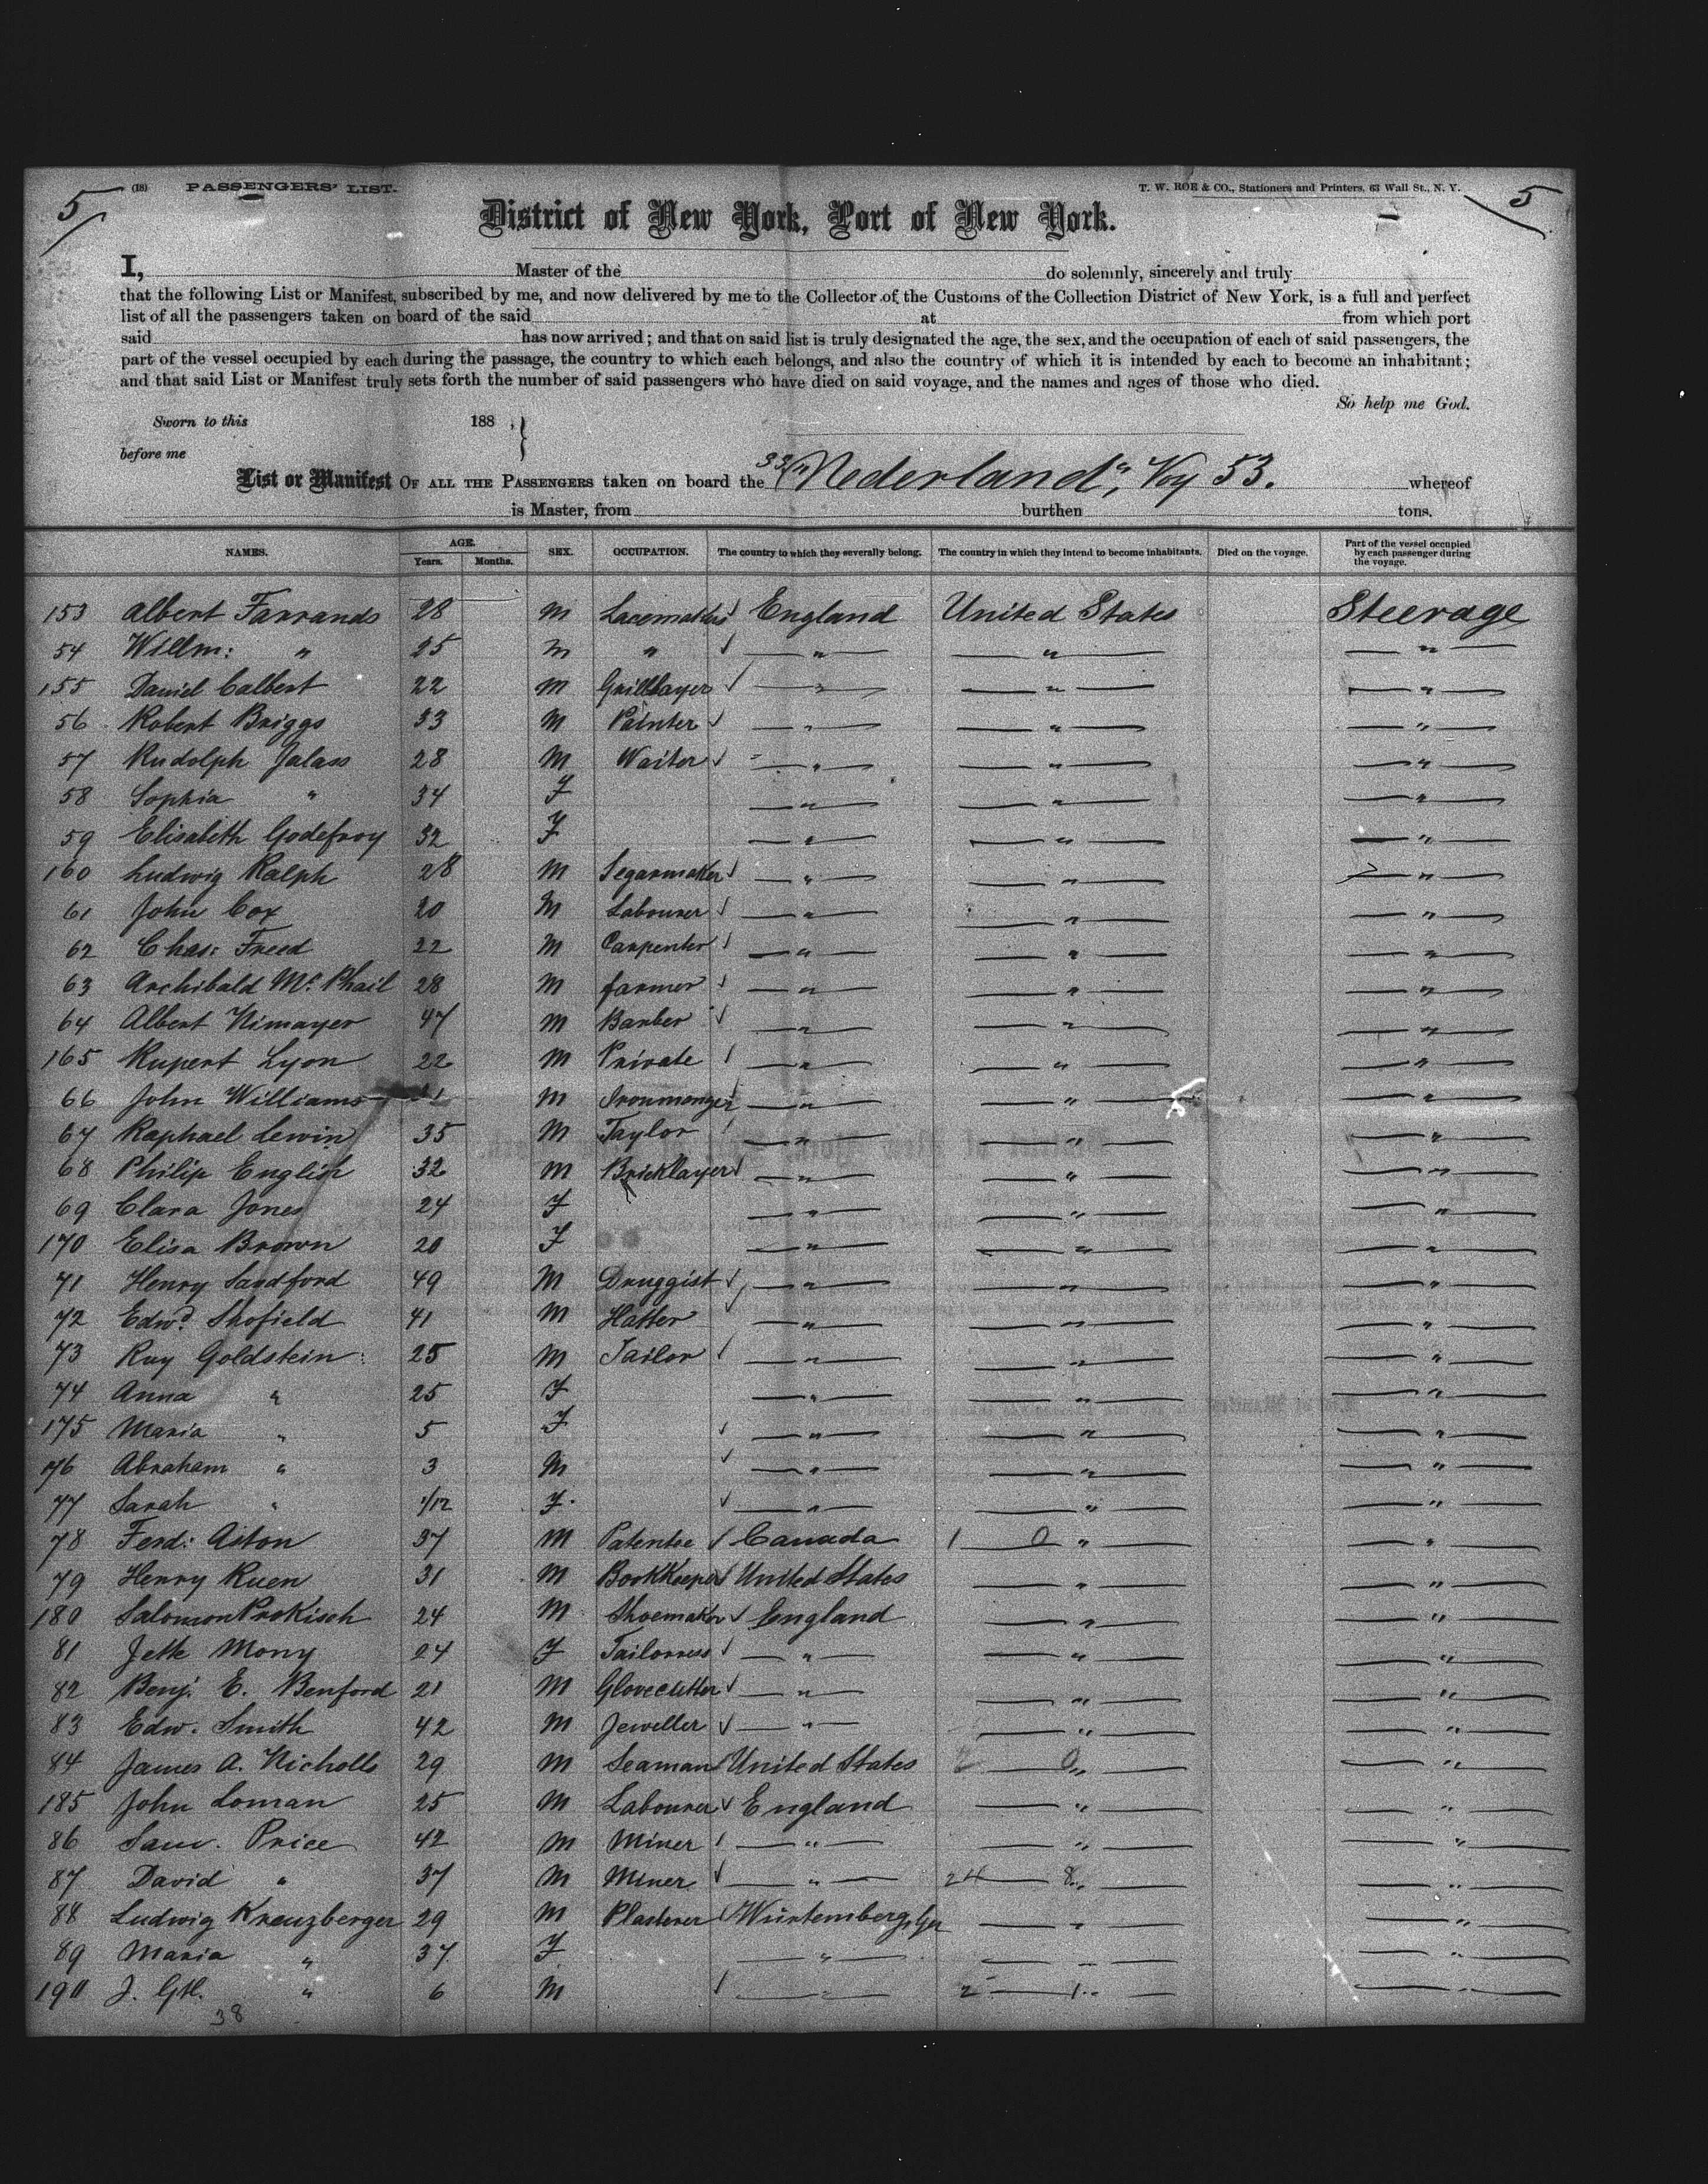 5 (18) PASSENGERS' LIST. T. W. ROE & CO., Stationers and Printers, 63 Wall St., N. Y. 5
District of New York, Port of New York.
I, Master of the do solemnly, sincerely and truly
that the following List or Manifest, subscribed by me, and now delivered by me to the Collector of the Customs of the Collection District of New York, is a full and perfect
list of all the passengers taken on board of the said at from which port
said has now arrived; and that on said list is truly designated the age, the sex, and the occupation of each of said passengers, the
part of the vessel occupied by each during the passage, the country to which each belongs, and also the country of which it is intended by each to become an inhabitant;
and that said List or Manifest truly sets forth the number of said passengers who have died on said voyage, and the names and ages of those who died.
So help me God.
Sworn to this 188 ,
before me
List or Manifest OF ALL THE PASSENGERS taken on board the "Nederland", Voy 53. whereof
is Master, from burthen tons.
NAMES. AGE. Years. Months. SEX. OCCUPATION. The country to which they severally belong. The country in which they intend to become inhabitants. Died on the voyage. Part of the vessel occupied by each passenger during the voyage.
153 Albert Farrands 28 M Lacemakers England United States Steerage
54 Willm: " 25 M " " " "
155 Daniel Calbert 22 M " " "
56 Robert Briggs 33 M Painter " " "
57 Rudolph Jalass 28 M Waiter " " "
58 Sophia " 34 F " " "
59 Elisabeth Godefroy 32 F " " "
160 Ludwig Ralph 28 M Segarmaker " " "
61 John Cox 20 M Labourer " " "
62 Chas: Freed 22 M Carpenter " " "
63 Archibald Mc Phail 28 M farmer " " "
64 Albert Nimayer 47 M Barber " " "
165 Rupert Lyon 22 M Private " " "
66 John Williams M Ironmonger " " "
67 Raphael Lewin 35 M Taylor " " "
68 Philip English 32 M Bricklayer " " "
69 Clara Jones 24 F " " "
170 Elisa Brown 20 F " " "
71 Henry Sandford 49 M Druggist " " "
72 Edwd. Shofield 41 M Hatter " " "
73 Ruy Goldstein 25 M Tailor " " "
74 Anna " 25 F " " "
175 Maria " 5 F " " "
76 Abraham " 3 M " " "
77 Sarah " 1/12 F " " "
78 Ferd: Aston 37 M Patentee Canada 1 0 " "
79 Henry Ruen 31 M BookKeeper United States " "
180 Salomon ProKisch 24 M Shoemaker England " "
81 Jette Mony 24 F Tailoress " " "
82 Benj. E. Benford 21 M Glovecutter " " "
83 Edw. Smith 42 M Jeweller " " "
84 James A. Nicholls 29 M Seaman United States 2 0 " "
185 John Loman 25 M Labourer England " "
86 Sam. Price 42 M Miner " " "
87 David " 37 M Miner " 24 8 " "
88 Ludwig Kreuzberger 29 M Plasterer Würtemberg, Ger " "
89 Maria " 37 F " " "
190 J. Gtl. " 6 M " 2 1 " "
38